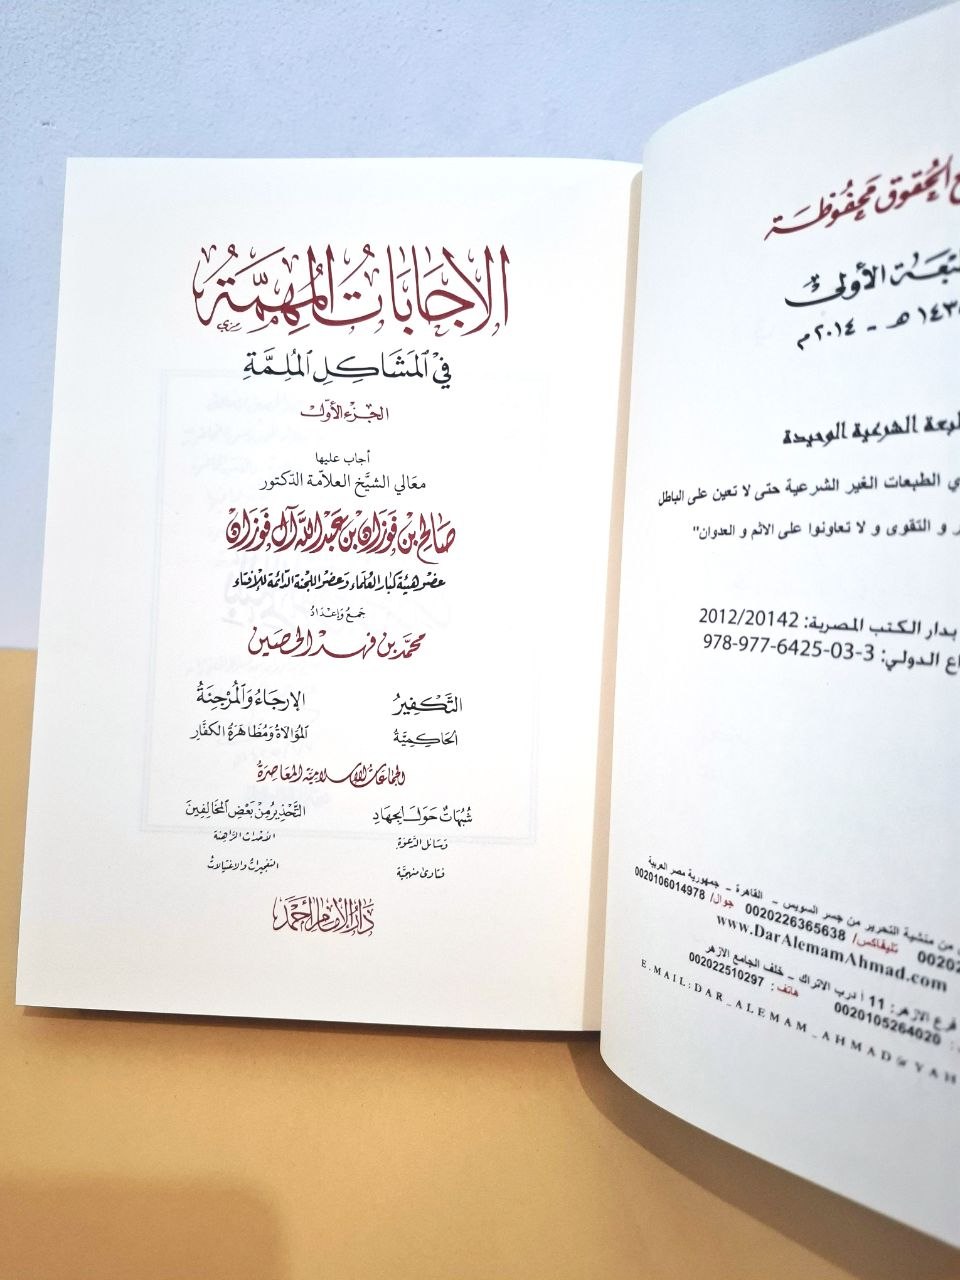 الإجابات المهمة
في المشاكل الملمة
الجزء الأول
أجاب عليها
معالي الشيخ العلامة الدكتور
صالح بن فوزان بن عبد الله آل فوزان
عضو هيئة كبار العلماء وعضو اللجنة الدائمة للإفتاء
جمع وإعداد
محمد بن فهد الحصين
التكفير الإرجاء والمرجئة
الحاكمية الموالاة ومظاهرة الكفار
الجماعات الإسلامية المعاصرة
شبهات حول الجهاد التحذير من بعض المخالفين
وسائل الدعوة الأحداث الراهنة
فتاوى منهجية التفجيرات والاغتيالات
دار الإمام أحمد
الحقوق محفوظة
الأولى
هـ - ٢٠١٤ م
الشرعية الوحيدة
الطبعات الغير الشرعية حتى لا تعين على الباطل
و التقوى و لا تعاونوا على الاثم و العدوان"
بدار الكتب المصرية: 2012/20142
الدولي: 978-977-6425-03-3
من منشية التحرير من جسر السويس - القاهرة - جمهورية مصر العربية
تليفاكس/ 0020226365638 جوال/ 0020106014978
www.DarAlemamAhmad.com
فرع الازهر: 11 أ درب الاتراك - خلف الجامع الازهر
0020105264020 هاتف: 002022510297
E.MAIL:DAR_ALEMAM_AHMAD@YAH